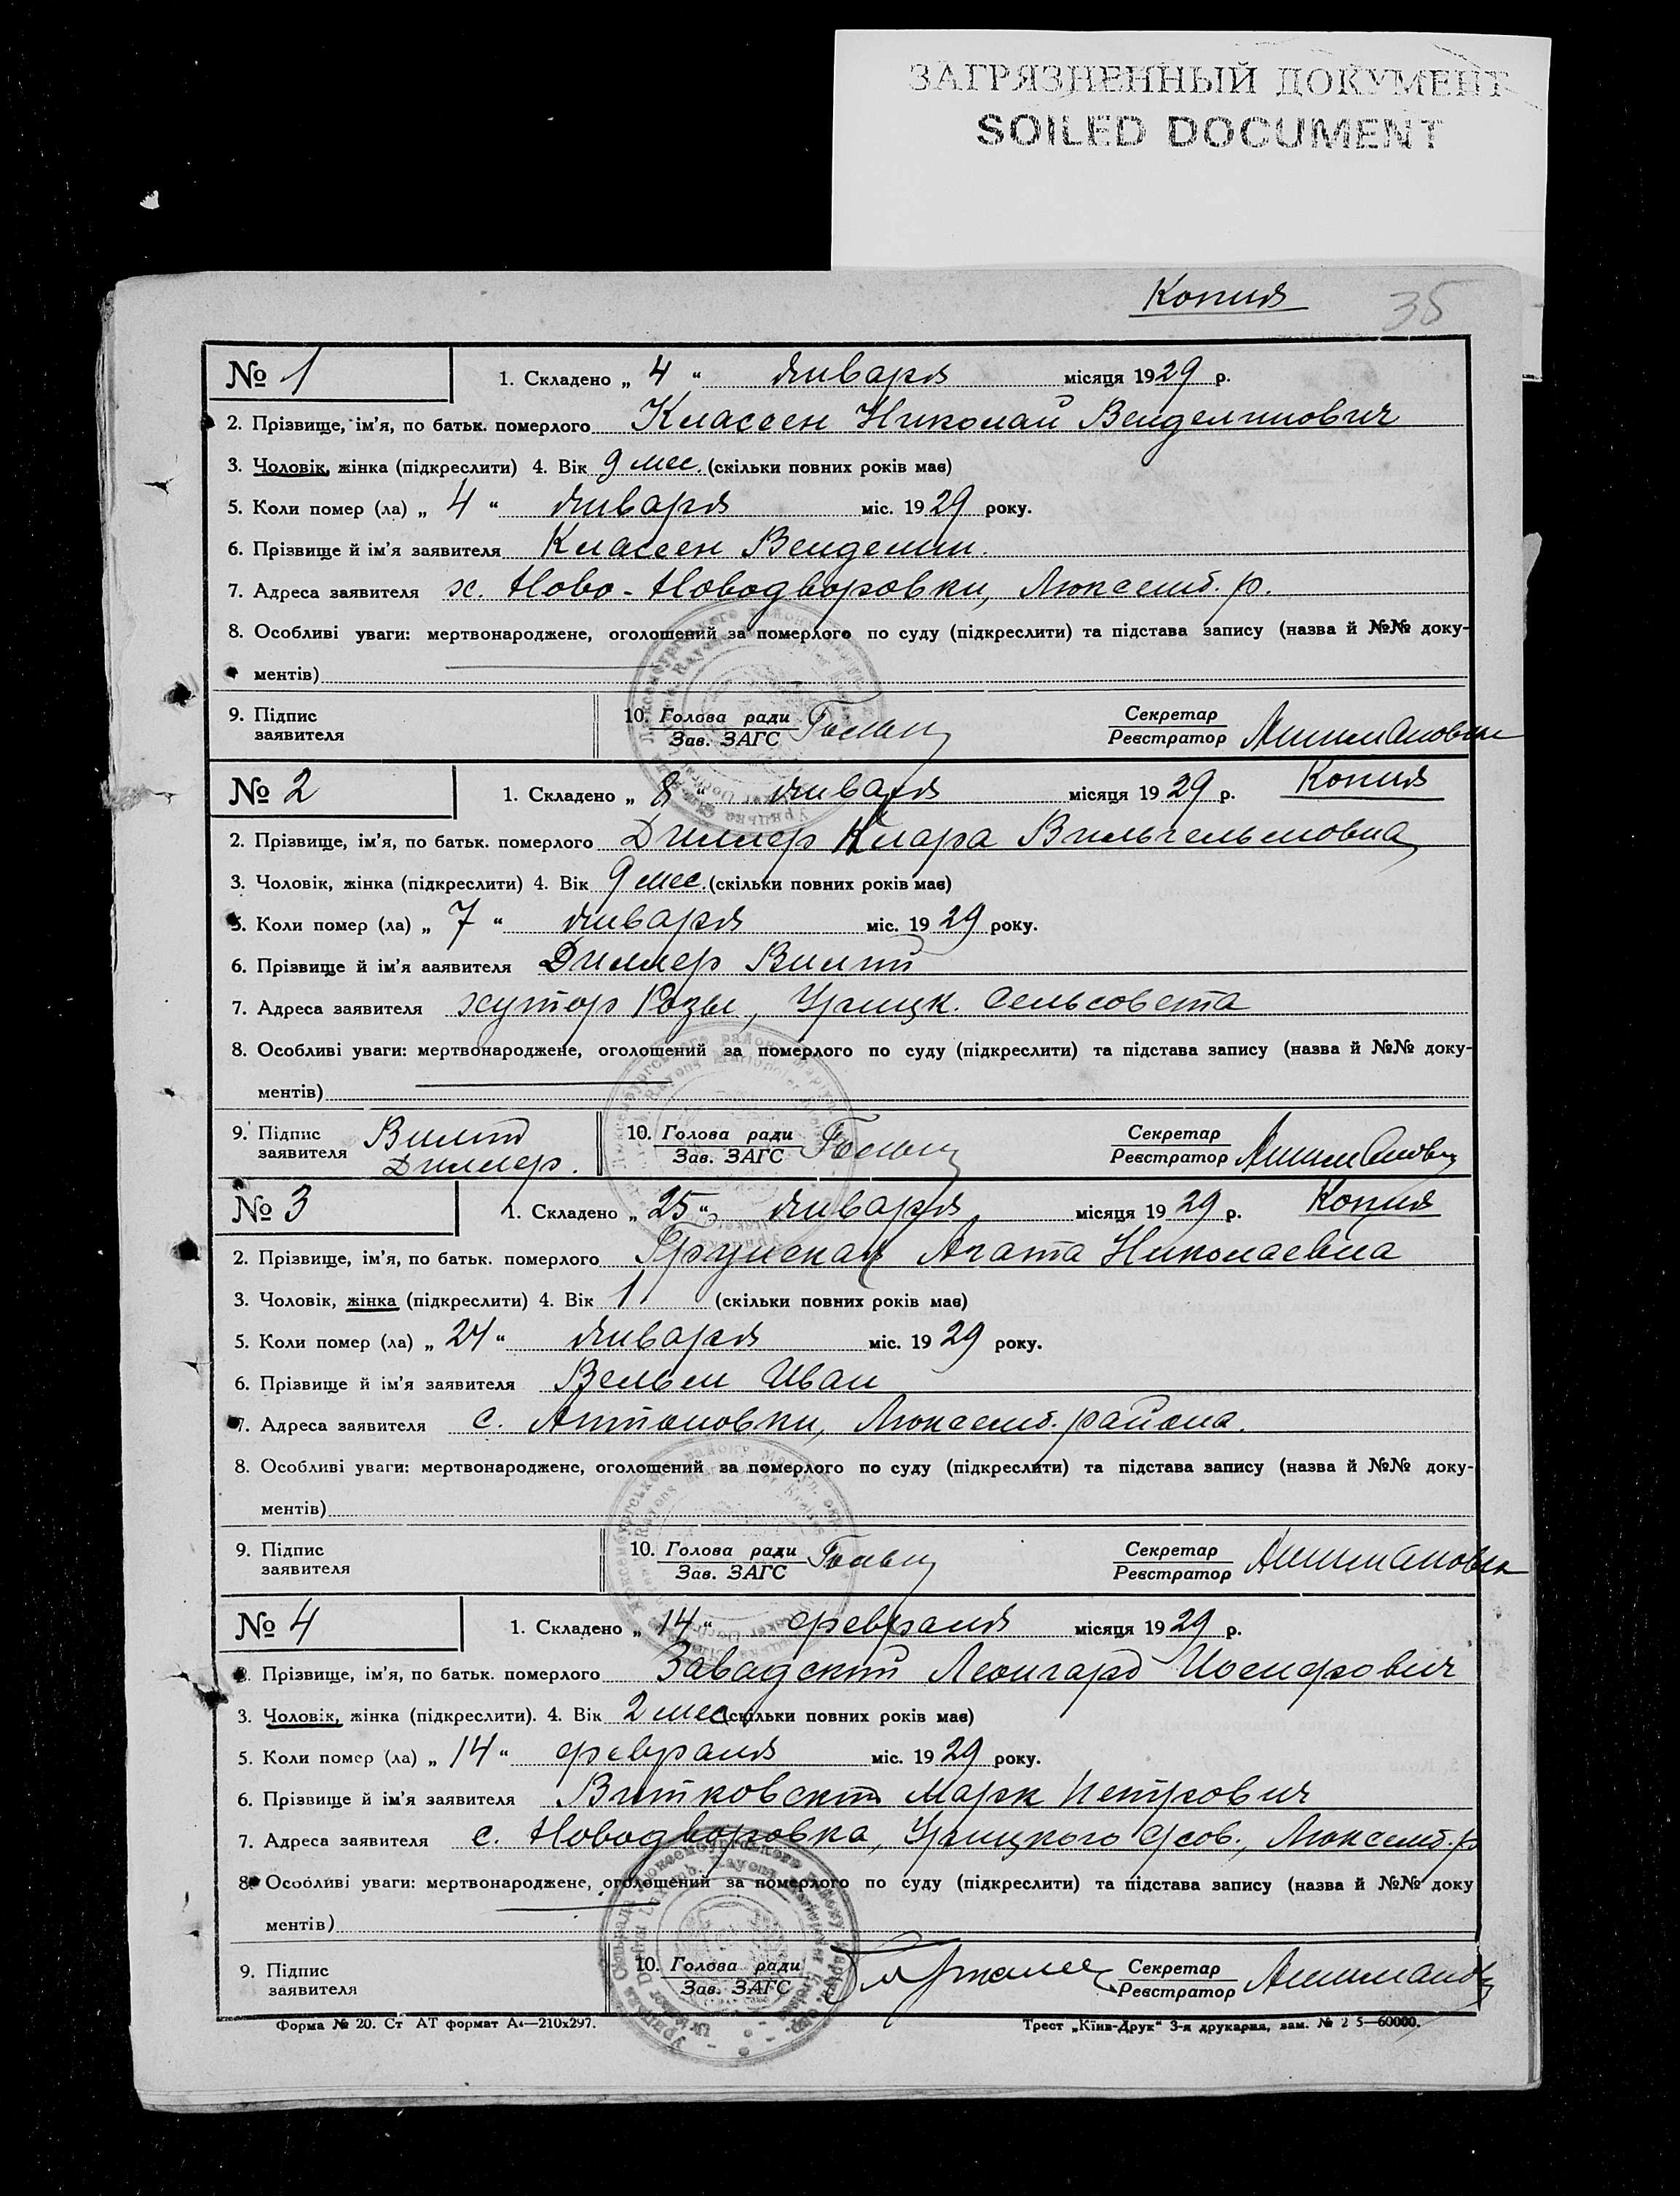 ЗАГРЯЗНЕННЫЙ ДОКУМЕНТ
SOILED DOCUMENT
Копия
35
№ 1
1. Складено „ 4 “ января місяця 1929 р.
2. Прізвище, ім'я, по батьк. померлого Классен Николай Венделинович
3. Чоловік, жінка (підкреслити) 4. Вік 9 мес. (скільки повних років має)
5. Коли помер (ла) „ 4 “ января міс. 1929 року.
6. Прізвище й ім'я заявителя Классен Венделин.
7. Адреса заявителя х. Ново-Новодворовки, Люксемб. р.
8. Особливі уваги: мертвонароджене, оголошений за померлого по суду (підкреслити) та підстава запису (назва й №№ доку-
ментів)
9. Підпис заявителя
10. Голова ради Зав. ЗАГС
Секретар Реєстратор
№ 2
1. Складено „ 8 “ января місяця 1929 р.
Копия
2. Прізвище, ім'я, по батьк. померлого Диллер Клара Вильгельмовна
3. Чоловік, жінка (підкреслити) 4. Вік 9 мес. (скільки повних років має)
5. Коли помер (ла) „ 7 “ января міс. 1929 року.
6. Прізвище й ім'я ааявителя Диллер
7. Адреса заявителя хутор Розы, Урицк. сельсовета
8. Особливі уваги: мертвонароджене, оголошений за померлого по суду (підкреслити) та підстава запису (назва й №№ доку-
ментів)
9. Підпис заявителя Диллер.
10. Голова ради Зав. ЗАГС
Секретар Реєстратор
№ 3
1. Складено „ 25 “ января місяця 1929 р.
Копия
2. Прізвище, ім'я, по батьк. померлого Агата Николаевна
3. Чоловік, жінка (підкреслити) 4. Вік 1 (скільки повних років має)
5. Коли помер (ла) „ 24 “ января міс. 1929 року.
6. Прізвище й ім'я заявителя Вельм Иван
7. Адреса заявителя с. Антоновки, Люксемб. района.
8. Особливі уваги: мертвонароджене, оголошений за померлого по суду (підкреслити) та підстава запису (назва й №№ доку-
ментів)
9. Підпис заявителя
10. Голова ради Зав. ЗАГС
Секретар Реєстратор
№ 4
1. Складено „ 14 “ февраля місяця 1929 р.
2. Прізвище, ім'я, по батьк. померлого Завадский Леонгард Иосифович
3. Чоловік, жінка (підкреслити). 4. Вік 2 мес (скільки повних років має)
5. Коли помер (ла) „ 14 “ февраля міс. 1929 року.
6. Прізвище й ім'я заявителя Витковский Марк Петрович
7. Адреса заявителя с. Новодворовка, Урицкого с/сов., Люксемб. р
8. Особливі уваги: мертвонароджене, оголошений за померлого по суду (підкреслити) та підстава запису (назва й №№ доку
ментів)
9. Підпис заявителя
10. Голова ради Зав. ЗАГС
Секретар Реєстратор
Форма № 20. Ст АТ формат А4—210х297.
Трест „Київ-Друк“ 3-я друкарня, зам. № 2 5—60000.